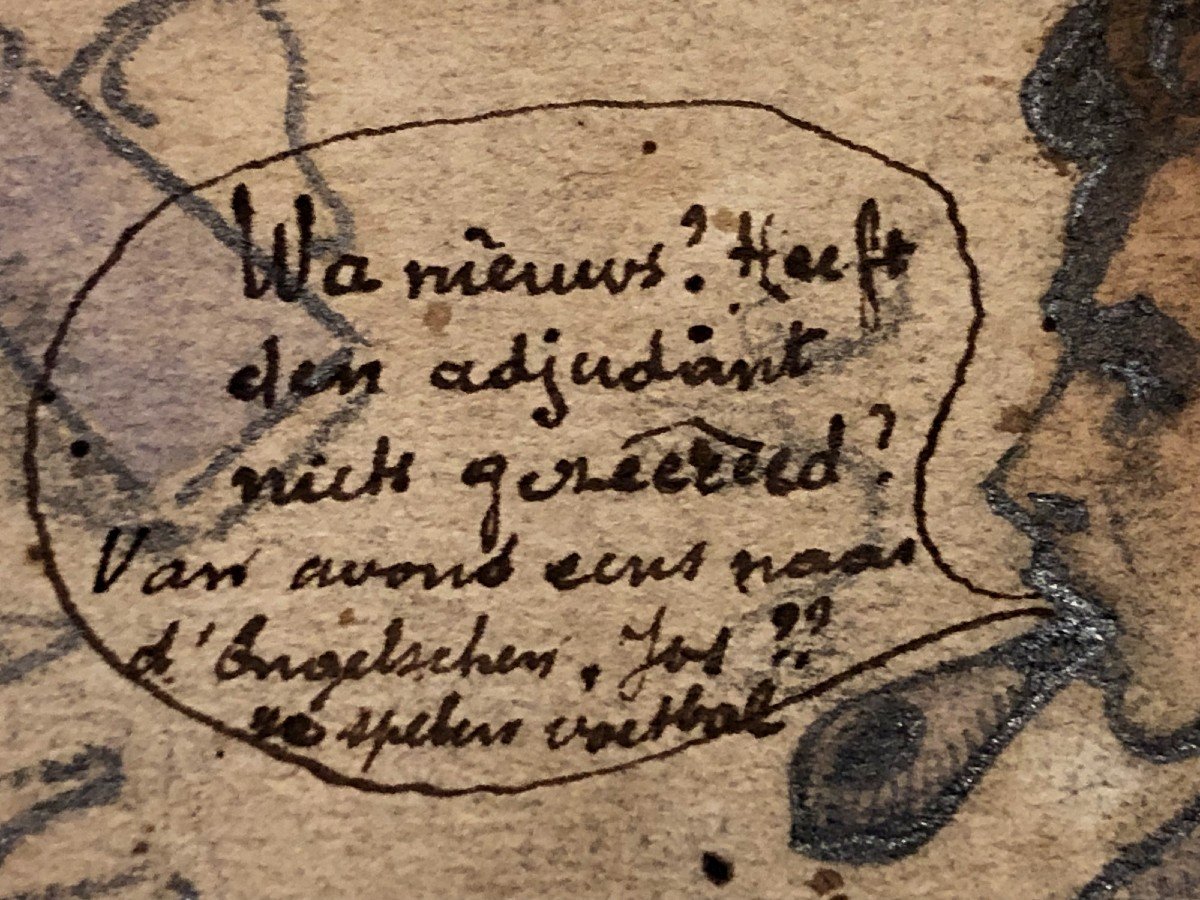 Wa nieuws? Heeft
den adjudant
niets gezeereed?
Van avond eens naar
d'Engelschen, Jos??
ze spelen voetbal